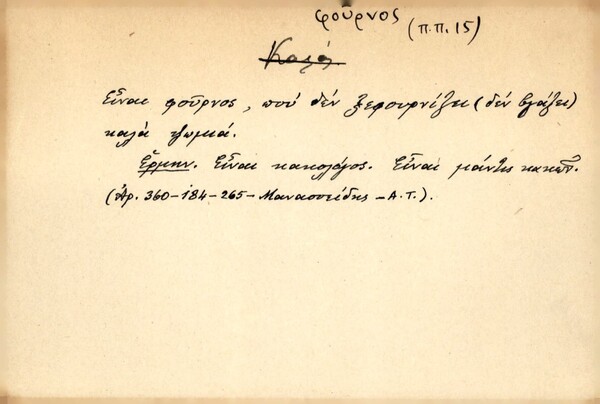 φοῦρνος (π.π. 15)
Καλά
Εἶναι φοῦρνος, πού δέν ξεφουρνίζει (δέν βγάζει)
καλά ψωμιά.
Ἑρμην. Εἶναι κακολόγος. Εἶναι μάντις κακῶν.
(Ἀρ. 360-184-265-Μανασσείδης-Α.Τ.).